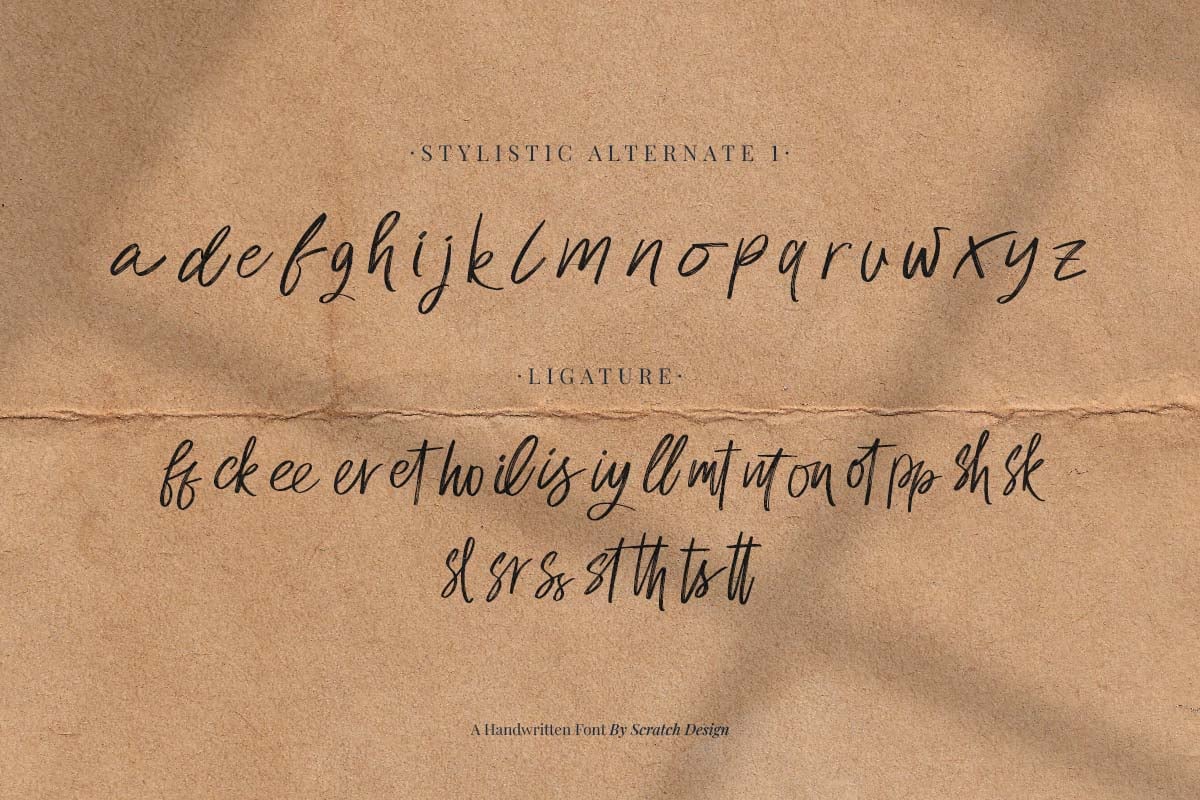 ·STYLISTIC ALTERNATE 1·
a d e f g h i j k l m n o p q r u w x y z
·LIGATURE·
ff ck ee er et ho il is iy ll mt nt on ot pp sh sk
sl sr ss st th ts tt
A Handwritten Font By Scratch Design